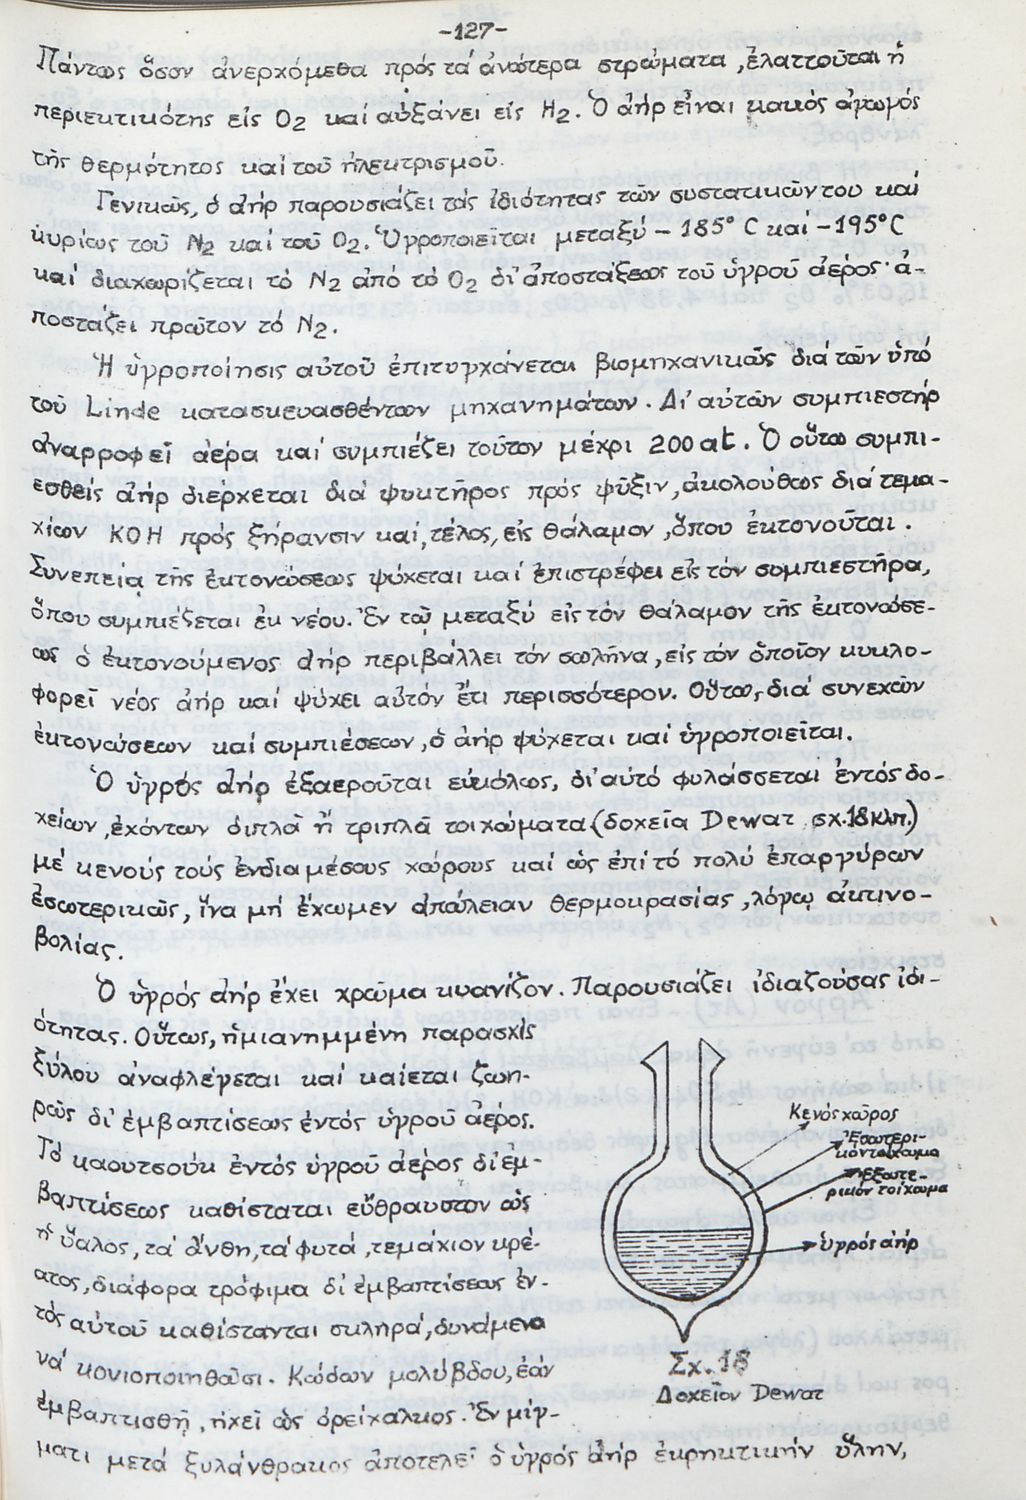 -127-
Πάντως ὅσον ἀνερχόμεθα πρός τά ἀνώτερα στρώματα, ἐλαττοῦται ἡ
περιεκτικότης εἰς O2 καί αὐξάνει εἰς H2. Ὁ ἀήρ εἶναι κακός ἀγωγός
τῆς θερμότητος καί τοῦ ἠλεκτρισμοῦ.
Γενικῶς, ὁ ἀήρ παρουσιάζει τάς ἰδιότητας τῶν συστατικῶν του καί
κυρίως τοῦ N2 καί τοῦ O2. Ὑγροποιεῖται μεταξύ - 185° C καί - 195° C
καί διαχωρίζεται τό N2 ἀπό τό O2 δι' ἀποστάξεως τοῦ ὑγροῦ ἀέρος· ἀ-
ποστάζει πρῶτον τό N2.
Ἡ ὑγροποίησις αὐτοῦ ἐπιτυγχάνεται βιομηχανικῶς διά τῶν ὑπό
τοῦ Linde κατασκευασθέντων μηχανημάτων. Δι' αὐτῶν συμπιεστήρ
ἀναρροφεῖ ἀέρα καί συμπιέζει τοῦτον μέχρι 200 at. Ὁ οὕτω συμπι-
εσθείς ἀήρ διέρχεται διά ψυκτῆρος πρός ψῦξιν, ἀκολούθως διά τεμα-
χίων KOH πρός ξήρανσιν καί, τέλος, εἰς θάλαμον, ὅπου ἐκτονοῦται.
Συνεπείᾳ τῆς ἐκτονώσεως ψύχεται καί ἐπιστρέφει εἰς τόν συμπιεστῆρα,
ὅπου συμπιέζεται ἐκ νέου. Ἐν τῷ μεταξύ εἰς τόν θάλαμον τῆς ἐκτονώσε-
ως ὁ ἐκτονούμενος ἀήρ περιβάλλει τόν σωλῆνα, εἰς τόν ὁποῖον κυκλο-
φορεῖ νέος ἀήρ καί ψύχει αὐτόν ἔτι περισσότερον. Οὕτω, διά συνεχῶν
ἐκτονώσεων καί συμπιέσεων, ὁ ἀήρ ψύχεται καί ὑγροποιεῖται.
Ὁ ὑγρός ἀήρ ἐξαεροῦται εὐκόλως, δι' αὐτό φυλάσσεται ἐντός δο-
χείων, ἐχόντων διπλᾶ ἤ τριπλᾶ τοιχώματα (δοχεῖα Dewat σχ. 18 κλπ.)
μέ κενούς τούς ἐνδιαμέσους χώρους καί ὡς ἐπί τό πολύ ἐπαργύρων
ἐσωτερικῶς, ἵνα μή ἔχωμεν ἀπώλειαν θερμοκρασίας, λόγῳ ἀκτινο-
βολίας.
Ὁ ὑγρός ἀήρ ἔχει χρῶμα κυανίζον. Παρουσιάζει ἰδιαζούσας ἰδι-
ότητας. Οὕτως, ἡμιανημμένη παρασχίς
ξύλου ἀναφλέγεται καί καίεται ζωη-
ρῶς δι' ἐμβαπτίσεως ἐντός ὑγροῦ ἀέρος.
Τό καουτσούκ ἐντός ὑγροῦ ἀέρος δι' ἐμ-
βαπτίσεως καθίσταται εὔθραυστον ὡς
ἡ ὕαλος, τά ἄνθη, τά φυτά, τεμάχιον κρέ-
ατος, διάφορα τρόφιμα δι' ἐμβαπτίσεως ἐν-
τός αὐτοῦ καθίστανται σκληρά, δυνάμενα
νά κονιοποιηθῶσι. Κώδων μολύβδου, ἐάν
ἐμβαπτισθῇ, ἠχεῖ ὡς ὀρείχαλκος. Ἐν μίγ-
ματι μετά ξυλάνθρακος ἀποτελεῖ ὁ ὑγρός ἀήρ ἐκρηκτικήν ὕλην,
Κενός χῶρος
Ἐσωτερι-
κόν τοίχωμα
Ἐξωτε-
ρικόν τοίχωμα
ὑγρός ἀήρ
Σχ. 18
Δοχεῖον Dewat